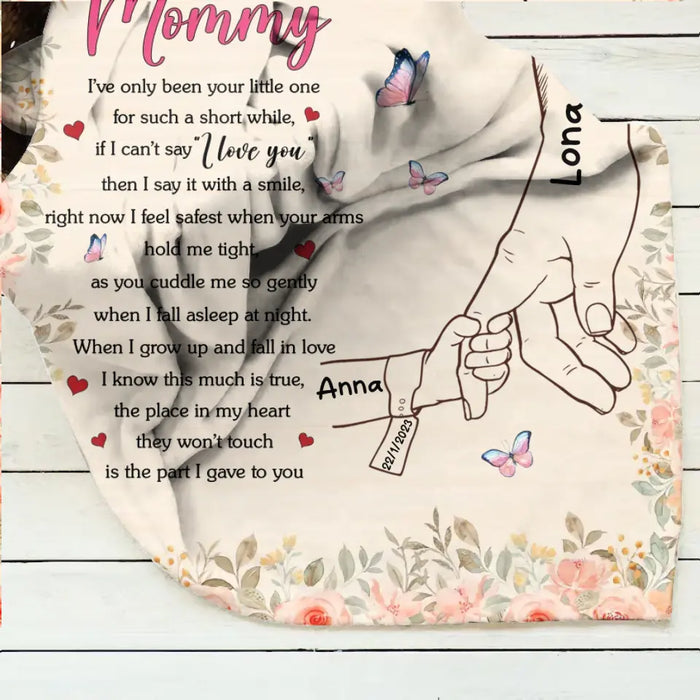 Mommy
I've only been your little one
for such a short while,
if I can't say "I love you"
then I say it with a smile,
right now I feel safest when your arms
hold me tight,
as you cuddle me so gently
when I fall asleep at night.
When I grow up and fall in love
I know this much is true,
the place in my heart
they won't touch
is the part I gave to you
Lona
Anna
22/1/2023